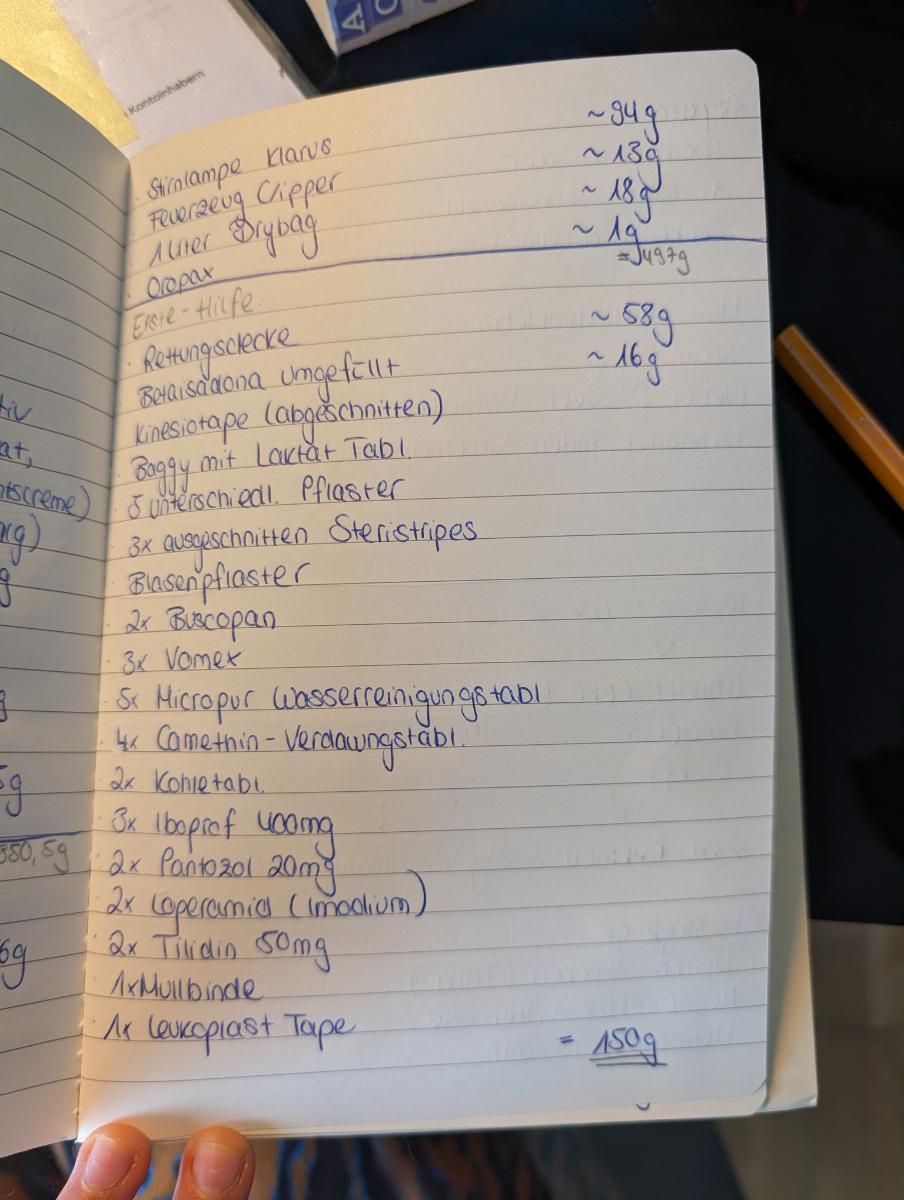 A
Kontoinhabern
· Stirnlampe Klarus ~94g
· Feuerzeug Clipper ~13g
· 1 Liter Drybag ~18g
· Oropax ~1g
= 497g
Erste-Hilfe:
· Rettungsdecke ~58g
· Betaisadona umgefüllt ~16g
· Kinesiotape (abgeschnitten)
· Baggy mit Laktat Tabl.
· 5 unterschiedl. Pflaster
· 3x ausgeschnitten Steristripes
· Blasenpflaster
· 2x Buscopan
· 3x Vomex
· 5x Micropur Wasserreinigungstabl
· 4x Camethin-Verdauungstabl.
· 2x Kohletabl.
· 3x Ibuprof 400mg
· 2x Pantozol 20mg
· 2x Loperamid (Imodium)
· 2x Tilidin 50mg
· 1x Mullbinde
· 1x Leukoplast Tape
= 150g
at,
tscreme)
g
5g
350,5g
6g